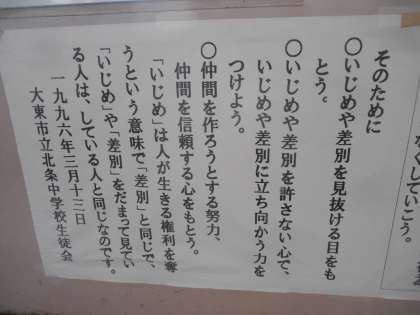 なくしていこう。
そのために
〇いじめや差別を見抜ける目をも
とう。
〇いじめや差別を許さない心で、
いじめや差別に立ち向かう力を
つけよう。
〇仲間を作ろうとする努力、
仲間を信頼する心をもとう。
「いじめ」は人が生きる権利を奪
うという意味で「差別」と同じで、
「いじめ」や「差別」をだまって見てい
る人は、している人と同じなのです。
一九九六年三月十三日
大東市立北条中学校生徒会